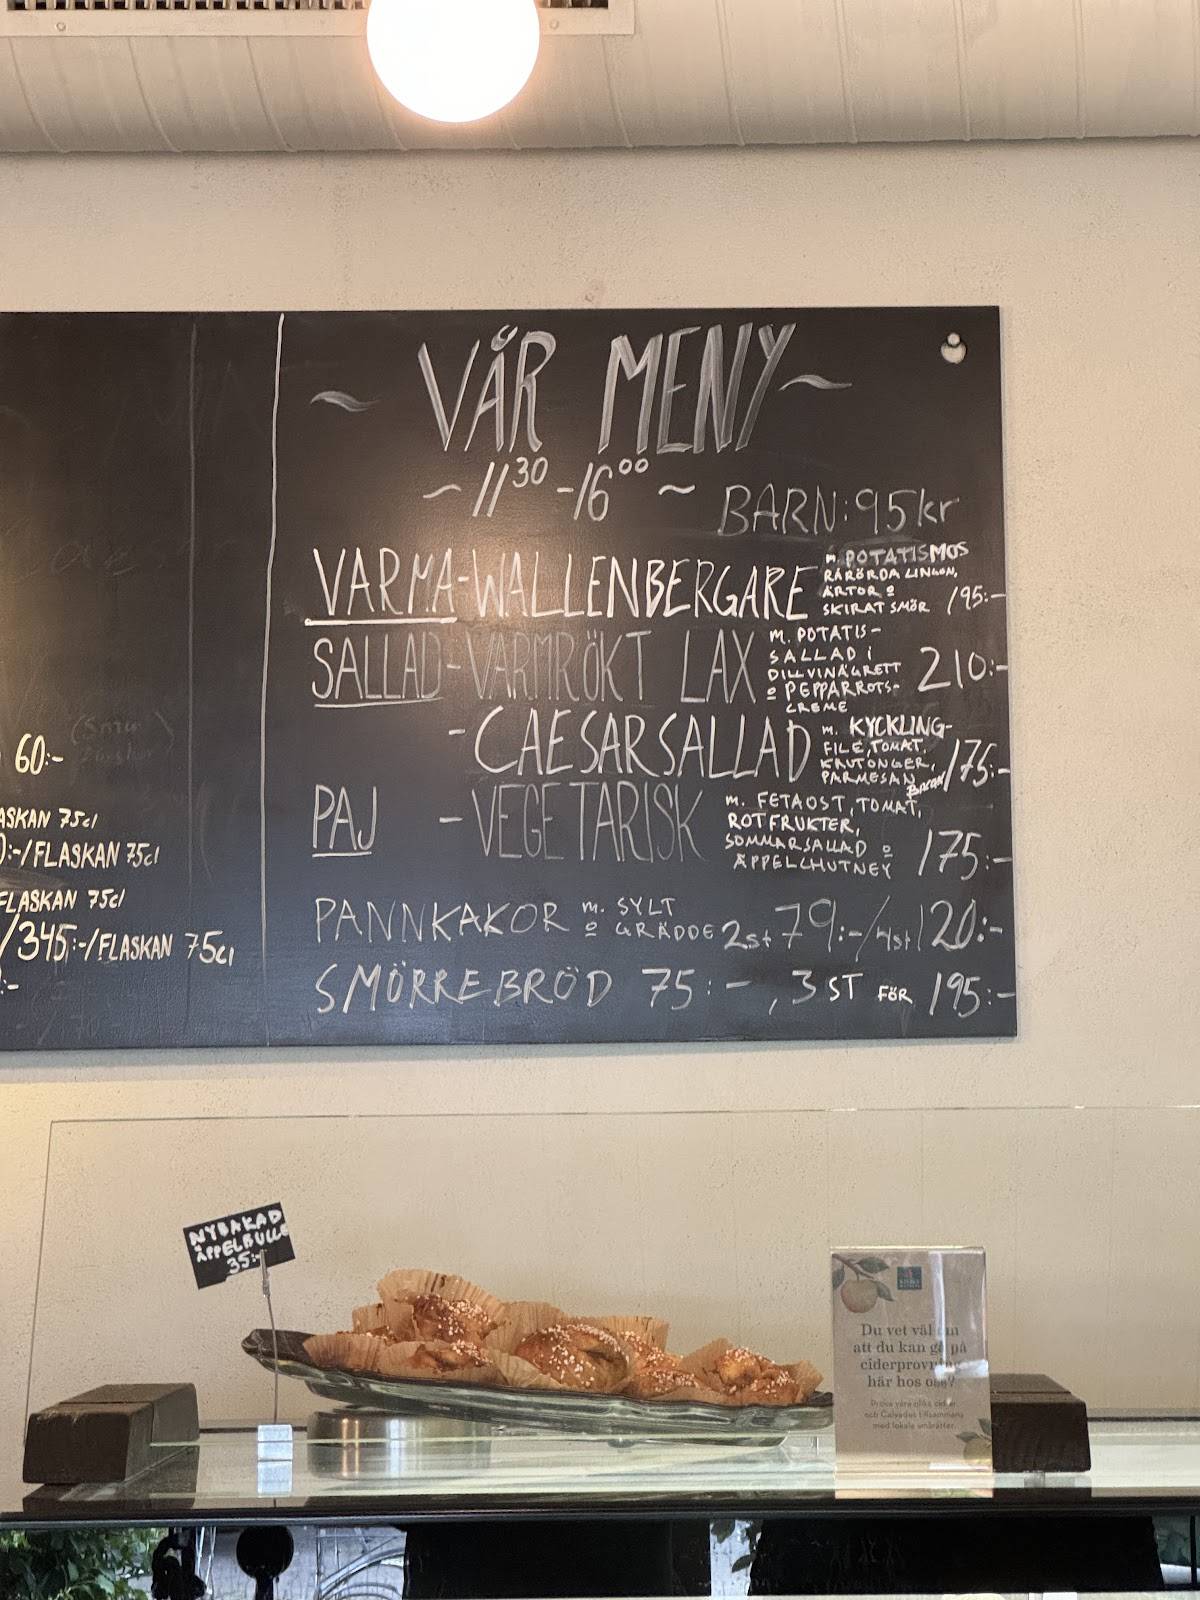 VÅR MENY
~ 11³⁰ - 16⁰⁰ ~
BARN: 95 kr
VARMA - WALLENBERGARE
m. POTATISMOS
RÅRÖRDA LINGON,
ÄRTOR o
SKIRAT SMÖR 195:-
SALLAD - VARMRÖKT LAX
m. POTATIS-
SALLAD i
DILLVINÄGRETT
o PEPPARROTS-
CREME
210:-
- CAESARSALLAD
m. KYCKLING-
FILE, TOMAT,
KRUTONGER,
PARMESAN
Bacon
175:-
PAJ - VEGETARISK
m. FETAOST, TOMAT,
ROTFRUKTER,
SOMMARSALLAD o
ÄPPELCHUTNEY
175:-
PANNKAKOR m. SYLT
o GRÄDDE 2st 79:-/4st 120:-
SMÖRREBRÖD 75:-, 3 ST FÖR 195:-
60:-
75cl
:-/FLASKAN 75cl
FLASKAN 75cl
/345:-/FLASKAN 75cl
:-
NYBAKAD
ÄPPELBULLE
35:-
Du vet väl om
att du kan gå på
ciderprovning
här hos oss?
Prova våra olika cider
och Calvados tillsammans
med lokala smårätter.